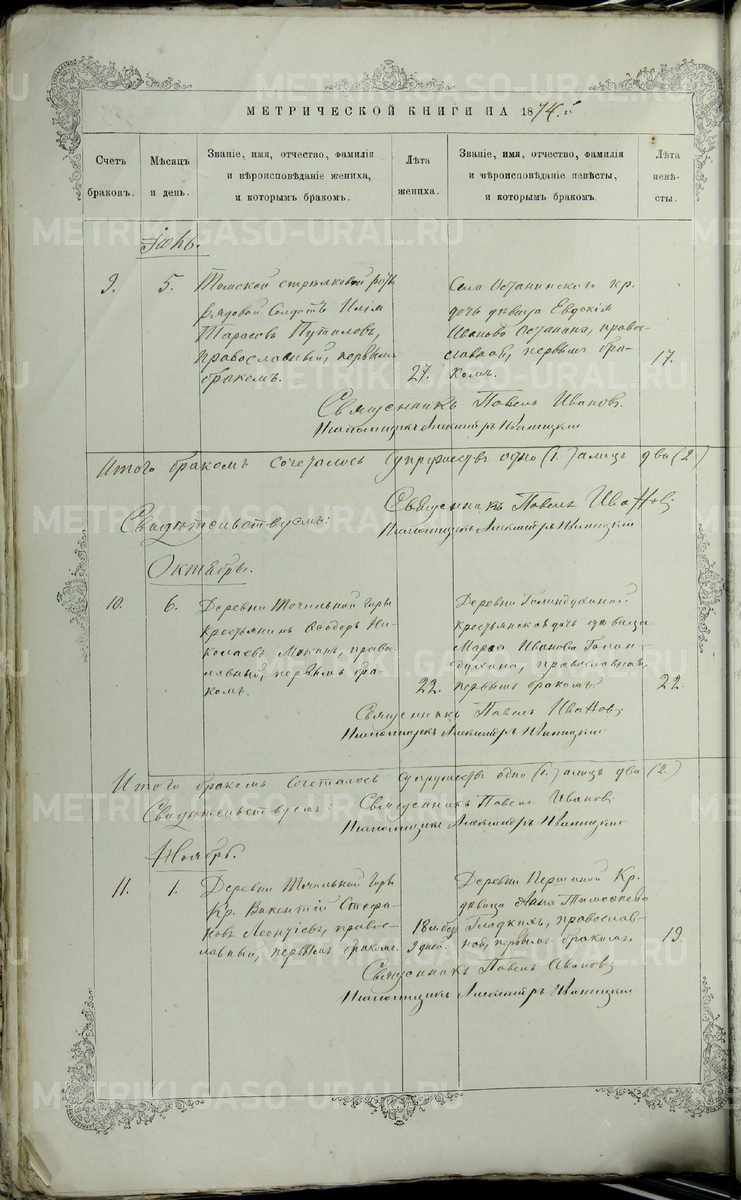 МЕТРИЧЕСКОЙ КНИГИ НА 1874.й
Счетъ браковъ.
Мѣсяцъ и день.
Званіе, имя, отчество, фамилія
и вѣроисповѣданіе жениха,
и которымъ бракомъ.
Лѣта жениха.
Званіе, имя, отчество, фамилія
и вѣроисповѣданіе невѣсты,
и которымъ бракомъ.
Лѣта невѣсты.
9. 5.
Томской стрѣлковой
рядовой Солдатъ
Тарасовъ Путиловъ,
православный, первымъ
бракомъ.
27.
Села Останинскаго кр.
дочь дѣвица Евдокія
Иванова Останина, право-
славной, первымъ бра-
комъ.
17.
Священникъ Павелъ Ивановъ.
Псаломщикъ Александръ
Итого бракомъ сочеталось супружествъ одно (1.) а лицъ два (2.)
Свидѣтельствуемъ:
Священникъ Павелъ Ивановъ
Псаломщикъ Александръ
Октябрь.
10. 6.
Деревни Точильной Горы
крестьянинъ Ѳеодоръ Ни-
колаевъ Мокинъ, право-
славный, первымъ бра-
комъ.
22.
Деревни Голендухиной
крестьянская дочь дѣвица
Марѳа Иванова Голен-
духина, православная,
первымъ бракомъ.
22.
Священникъ Павелъ Ивановъ
Псаломщикъ Александръ
Итого бракомъ сочеталось супружествъ одно (1.) а лицъ два (2.)
Свидѣтельствуемъ:
Священникъ Павелъ Ивановъ
Псаломщикъ Александръ
Ноябрь.
11. 1.
Деревни Точильной Горы
Кр. Викентій Стефа-
новъ Леонтіевъ, право-
славный, первымъ бракомъ.
18
9 дней.
Деревни Першиной Кр.
дѣвица Анна Тимоѳеева
Гладкихъ, православ-
ной, первымъ бракомъ.
19.
Священникъ Павелъ Ивановъ
Псаломщикъ Александръ
METRIKI.GASO-URAL.RU